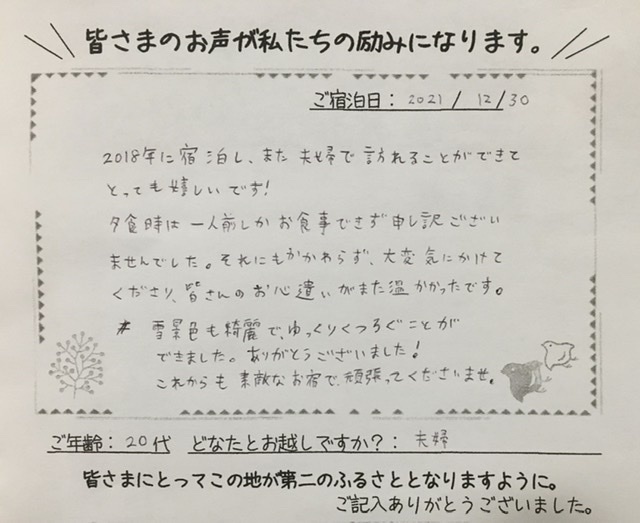 皆さまのお声が私たちの励みになります。
ご宿泊日: 2021 / 12 / 30
2018年に宿泊し、また夫婦で訪れることができて
とっても嬉しいです!
夕食時は一人前しかお食事できず申し訳ござい
ませんでした。それにもかかわらず、大変気にかけて
くださり、皆さんのお心遣いがまた温かかったです。
# 雪景色も綺麗で、ゆっくりくつろぐことが
できました。ありがとうございました!
これからも素敵なお宿で、頑張ってくださいませ。
ご年齢: 20代 どなたとお越しですか?: 夫婦
皆さまにとってこの地が第二のふるさととなりますように。
ご記入ありがとうございました。